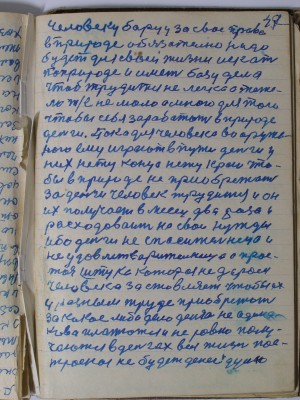 47
Человеку борцу за свое право
в природе обязательно надо
будет для своей жизни искать
в природе и иметь базу дела
чтоб трудится не легко а тяже-
ло т/е не мало а много для того
чтобы себя заработать в природе
деньги. Пока для человека во окруже
ного ему играют в пути деньги у
них нету конца нету края что-
бы в природе не приобретать
за деньги человек трудится и он
их получает в месяц два раза и
расходовает на свои нужды
ибо деньги не спасительница и
не удовлетварительница а прос-
тая штука которая не даром
человека заставляет чтобы их
в разным труде приобретать
за какое либо дело деньга не одина-
кова платются и не ровно полу-
чаются в деньгах вся жизнь пос-
троеная не будет денег думаю